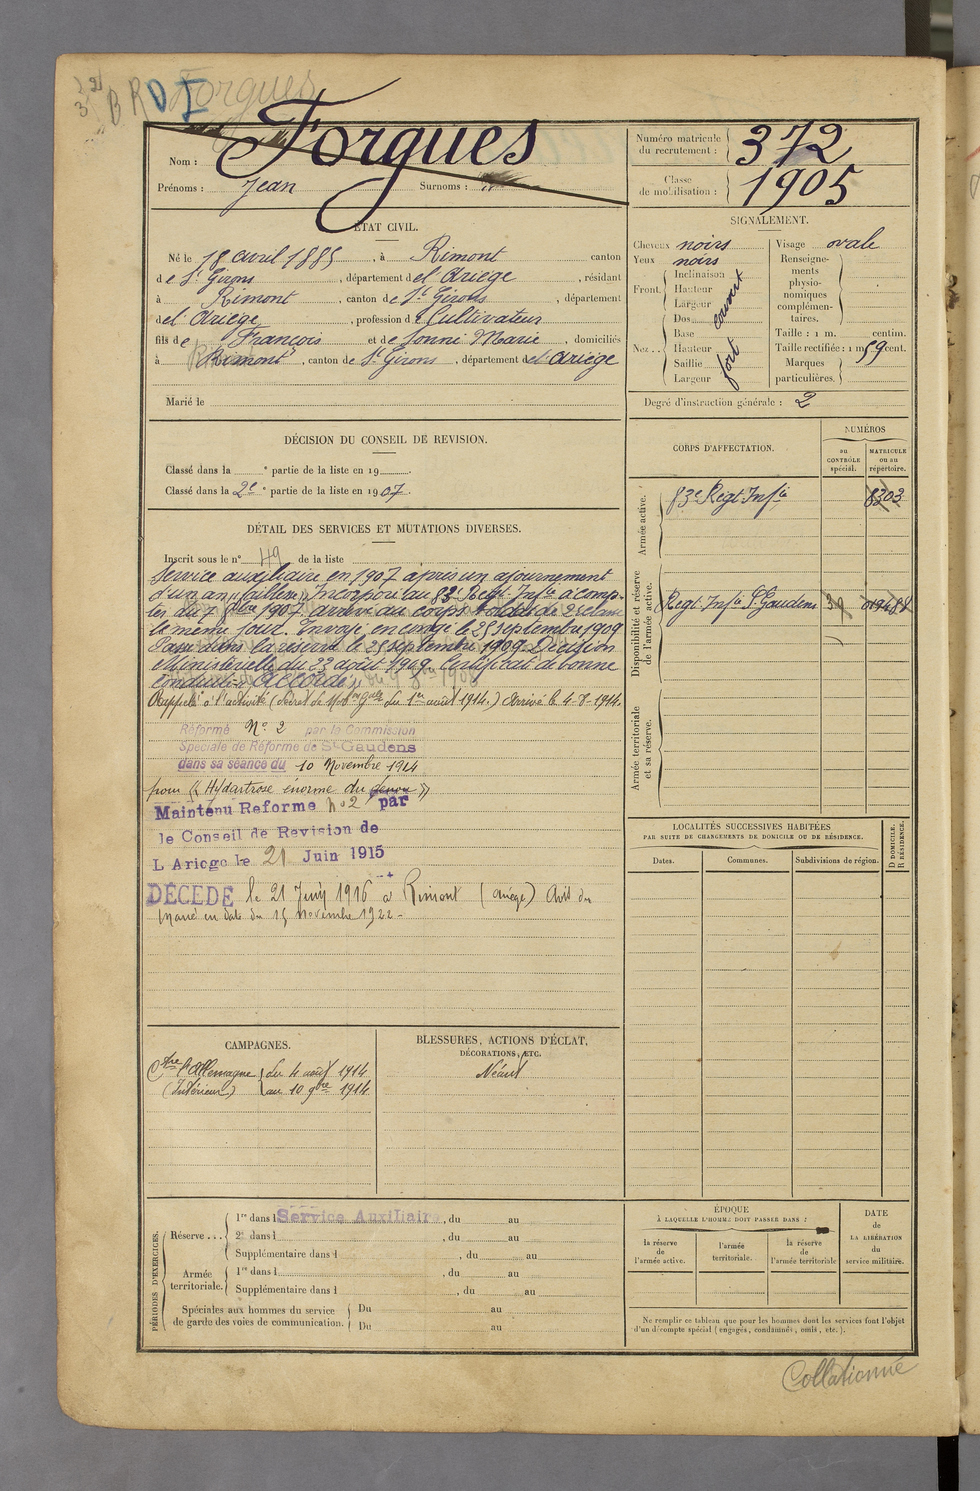 Forgues
B R D I
Nom : Forgues
Prénoms : Jean Surnoms :
Numéro matricule du recrutement : 372
Classe de mobilisation : 1905
ÉTAT CIVIL.
Né le 18 avril 1885, à Rimont canton
de St Girons, département de l'Ariège, résidant
à Rimont, canton de St Girons, département
de l'Ariège, profession de Cultivateur
fils de François et de Sonni Marie, domiciliés
à Rimont, canton de St Girons, département de l'Ariège
Marié le
SIGNALEMENT.
Cheveux noirs
Yeux noirs
Front. Inclinaison
Hauteur
Largeur
couvert
Nez... Dos
Base
Hauteur
Saillie
Largeur
fort
Visage ovale
Renseignements physionomiques complémentaires.
Taille : 1 m. centim.
Taille rectifiée : 1 m 59 cent.
Marques particulières.
Degré d'instruction générale : 2
DÉCISION DU CONSEIL DE REVISION.
Classé dans la e partie de la liste en 19 .
Classé dans la 2e partie de la liste en 1907.
DÉTAIL DES SERVICES ET MUTATIONS DIVERSES.
Inscrit sous le n° 49 de la liste
Service auxiliaire en 1907 après un ajournement
d'un an "faiblesse". Incorporé au 83e Regt Infie à comp-
ter du 7 8bre 1907 arrivé au corps & soldat de 2e classe
le même jour. Envoyé en congé le 25 septembre 1909
Passé dans la réserve le 25 septembre 1909. Décision
Ministérielle du 23 août 1909. Certificat de bonne
conduite "Accordé"
Rappelé à l'activité (Décret de Mobon Gale du 1er août 1914.) Arrivé le 4-8-1914.
Réformé N° 2 par la Commission
Spéciale de Réforme de St Gaudens
dans sa séance du 10 Novembre 1914
pour « Hydartrose énorme du genou »
Maintenu Reforme no 2 par
le Conseil de Revision de
L Ariege le 21 Juin 1915
DÉCÉDÉ le 21 Juin 1916 à Rimont (Ariège) Avis du
Maire en date du 15 Novembre 1922 -
CORPS D'AFFECTATION.
NUMÉROS
au CONTRÔLE spécial.
MATRICULE ou au répertoire.
Armée active.
83e Regt Infie 8303
Disponibilité et réserve de l'armée active.
Regt Infie St Gaudens
Armée territoriale et sa réserve.
LOCALITÉS SUCCESSIVES HABITÉES
PAR SUITE DE CHANGEMENTS DE DOMICILE OU DE RÉSIDENCE.
Dates.
Communes.
Subdivisions de région.
D DOMICILE.
R RÉSIDENCE.
CAMPAGNES.
Ctre l'Allemagne du 4 août 1914
(Intérieur) au 10 9bre 1914
BLESSURES, ACTIONS D'ÉCLAT,
DÉCORATIONS, ETC.
Néant
PÉRIODES D'EXERCICES.
Réserve ... 1re dans l Service Auxiliaire, du au
2e dans l , du au
Supplémentaire dans l , du au
Armée territoriale. 1re dans l , du au
Supplémentaire dans l , du au
Spéciales aux hommes du service
de garde des voies de communication. Du au
Du au
ÉPOQUE
À LAQUELLE L'HOMME DOIT PASSER DANS :
la réserve de l'armée active.
l'armée territoriale.
la réserve de l'armée territoriale
DATE de LA LIBÉRATION du service militaire.
Ne remplir ce tableau que pour les hommes dont les services font l'objet
d'un décompte spécial (engagés, condamnés, omis, etc.).
Collationné